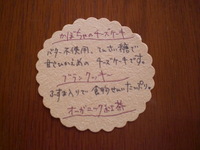 かぼちゃのチーズケーキ
バター不使用、てんさい糖で
甘さひかえめの チーズケーキです。
ブランクッキー
ふすま入りで食物せんいたっぷり。
オーガニック紅茶